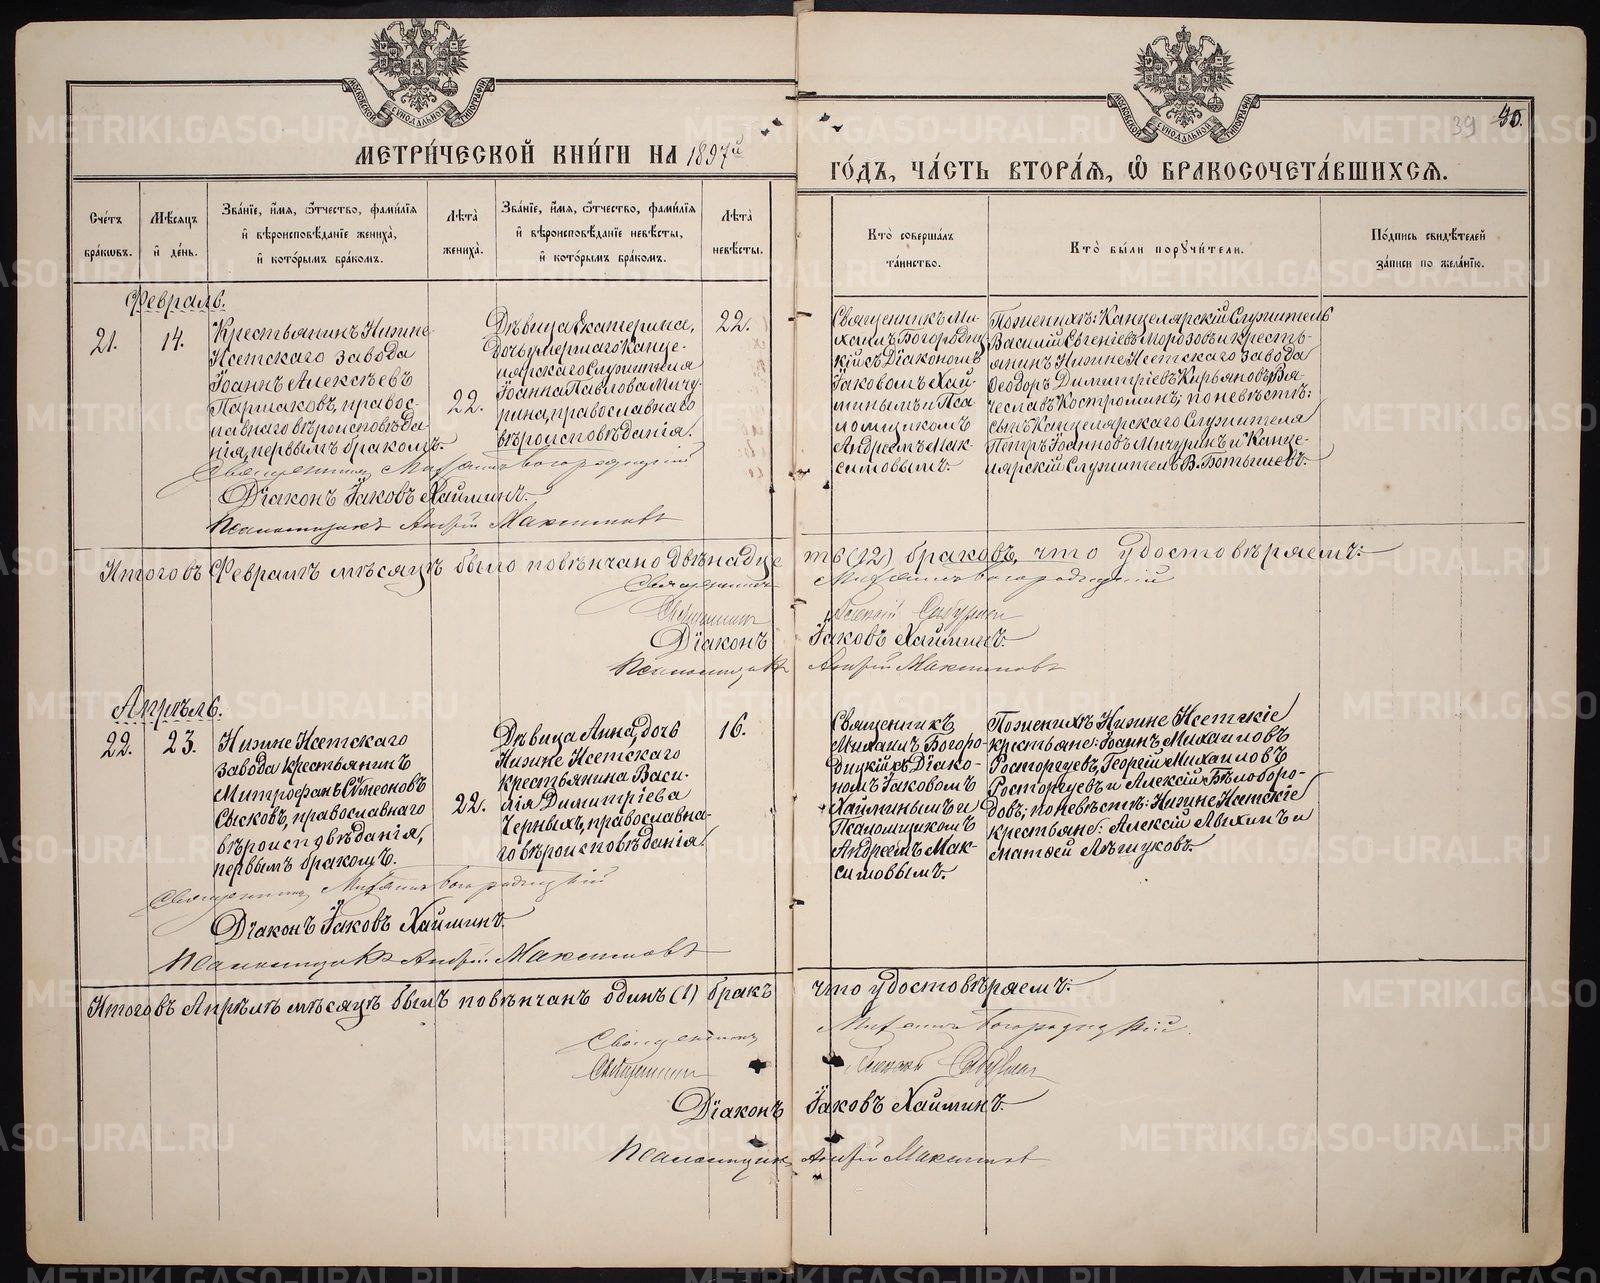 МЕТРИ́ЧЕСКОЙ КНИ́ГИ НА 1897й ГО́ДЪ, ЧА́СТЬ ВТОРА́Я, Ѡ҆ БРАКОСОЧЕТА́ВШИХСЯ.
39 40.
МОСКОВСКОЙ СѴНОДАЛЬНОЙ ТИПОГРАФІИ
МОСКОВСКОЙ СѴНОДАЛЬНОЙ ТИПОГРАФІИ
Сче́тъ
бра́кѡвъ.
Мѣ́сяцъ
и҆ де́нь.
Зва́нїе, и҆́мя, ѻ҆́тчество, фами́лїя
и҆ вѣроисповѣ́данїе жениха̀,
и҆ кото́рымъ бра́комъ.
Лѣ́та
жениха̀.
Зва́нїе, и҆́мя, ѻ҆́тчество, фами́лїя
и҆ вѣроисповѣ́данїе невѣ́сты,
и҆ кото́рымъ бра́комъ.
Лѣ́та
невѣ́сты.
Кто̀ соверша́лъ
та́инство.
Кто̀ бы́ли поручи́тели.
По́дпись свидѣ́телей
за́писи по жела́нїю.
Февраль.
21.
14.
Крестьянинъ Нижне-
Исетскаго завода
Іоаннъ Алексѣевъ
Паршаковъ, правос-
лавнаго вѣроисповѣда
нія, первымъ бракомъ.
22.
Дѣвица Екатерина,
дочь умершаго Канце-
лярскаго Служителя
Іоанна Павлова Мичу-
рина, православнаго
вѣроисповѣданія.
22.
Священникъ Ми-
хаилъ Богородиц-
кій съ Діакономъ
Іаковомъ Хай-
минымъ и Пса-
ломщикомъ
Андреемъ Мак-
симовымъ.
По женихѣ: Канцелярскій Служитель
Василій Евгеніевъ Морозовъ и кресть-
янинъ Нижне Исетскаго завода
Ѳеодоръ Димитріевъ Кирьяновъ, Вя-
чеславъ Костроминъ; по невѣстѣ:
сынъ Канцелярскаго Служителя
Петръ Іоанновъ Мичуринъ и Канце-
лярскій Служитель В. Ботышевъ.
Священникъ Михаилъ Богородицкій
Діаконъ Іаковъ Хайминъ.
Псаломщикъ Андрей Максимовъ
Итого въ Февралѣ мѣсяцѣ было повѣнчано двѣнадцать (12) браковъ, что удостовѣряемъ:
Священникъ Михаилъ Богородицкій
Священникъ Алексій
Діаконъ Іаковъ Хайминъ.
Псаломщикъ Андрей Максимовъ
Апрѣль.
22.
23.
Нижне Исетскаго
завода крестьянинъ
Митрофанъ Сѵмеоновъ
Сысковъ, православнаго
вѣроисповѣданія,
первымъ бракомъ.
22.
Дѣвица Анна, дочь
Нижне Исетскаго
крестьянина Васи-
лія Димитріева
Черныхъ, православна-
го вѣроисповѣданія.
16.
Священникъ
Михаилъ Богоро-
дицкій съ Діако-
номъ Іаковомъ
Хайминымъ и
Псаломщикомъ
Андреемъ Мак-
симовымъ.
По женихѣ Нижне Исетскіе
крестьяне: Іоаннъ Михаиловъ
Расторгуевъ, Георгій Михаиловъ
Расторгуевъ и Алексій Бѣлоборо-
довъ; по невѣстѣ: Нижне Исетскіе
крестьяне: Алексій Явихинъ и
Матѳей Лѣтуковъ.
Священникъ Михаилъ Богородицкій
Діаконъ Іаковъ Хайминъ.
Псаломщикъ Андрей Максимовъ
Итого въ Апрѣлѣ мѣсяцѣ былъ повѣнчанъ одинъ (1) бракъ что удостовѣряемъ:
Священникъ Михаилъ Богородицкій.
Священникъ Алексій
Діаконъ Іаковъ Хайминъ.
Псаломщикъ Андрей Максимовъ
METRIKI.GASO-URAL.RU